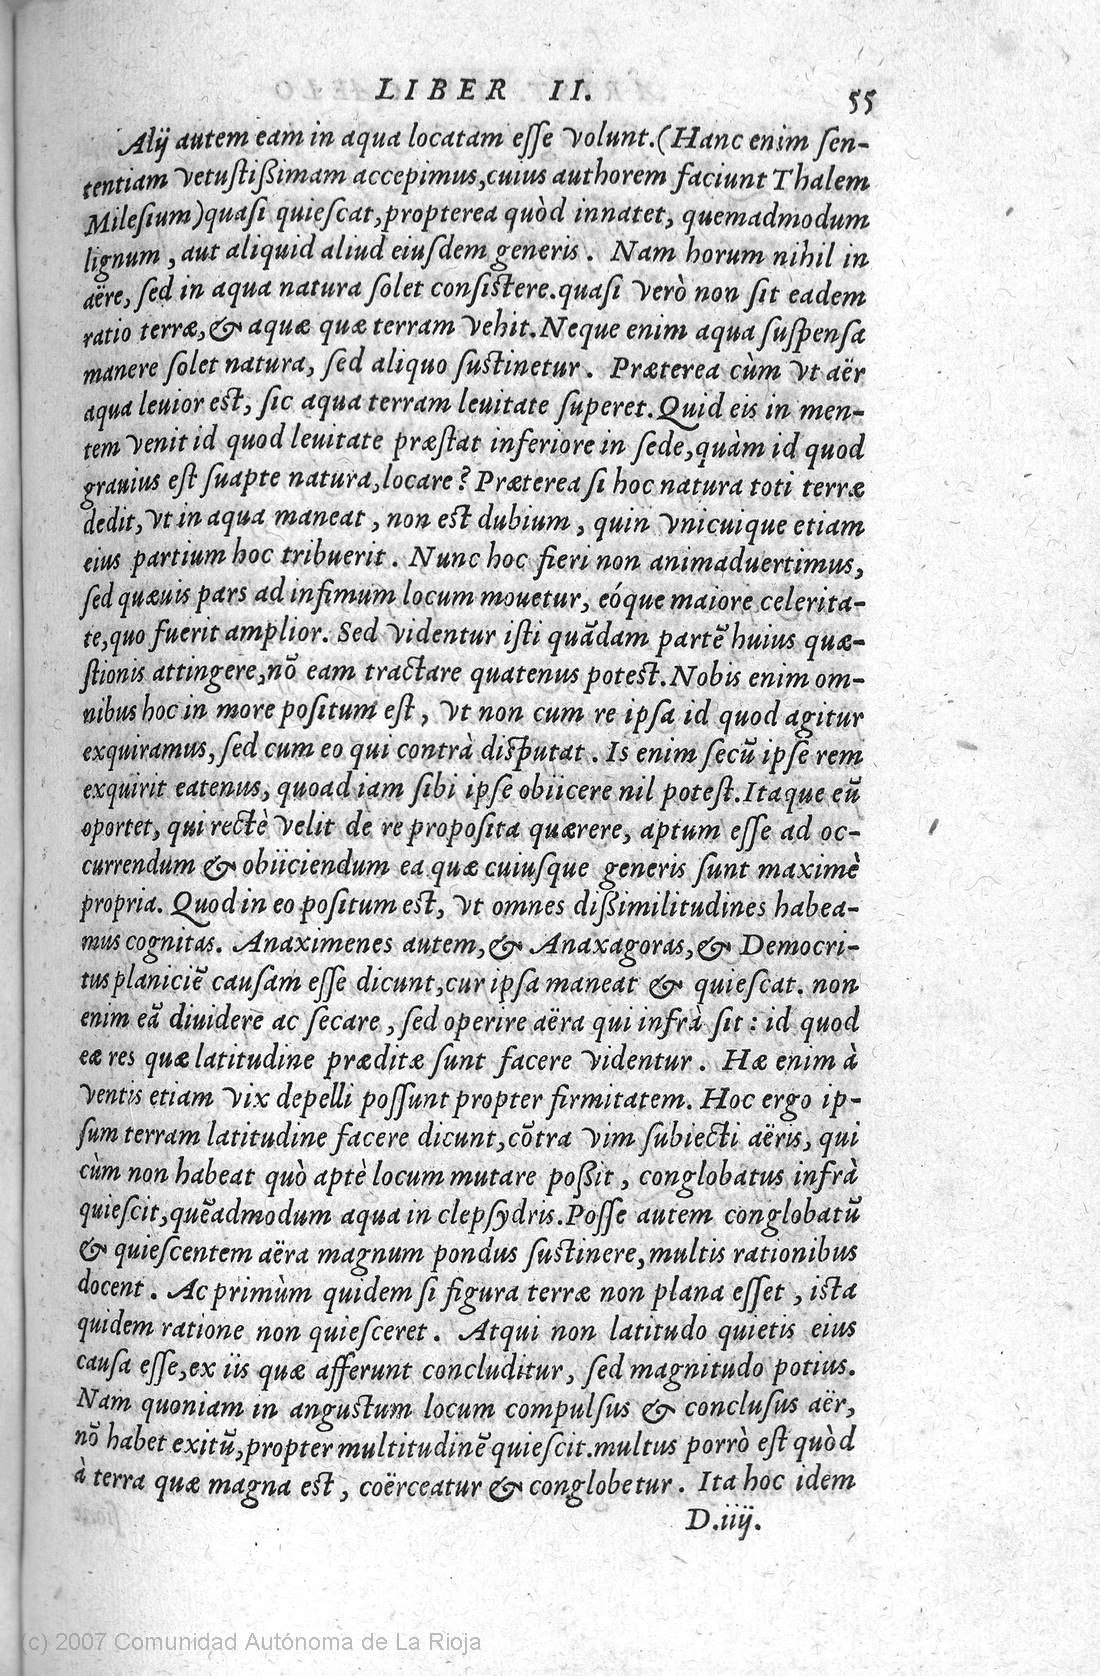 LIBER II. 55
Alij autem eam in aqua locatam eſſe volunt.(Hanc enim ſen-
tentiam vetuſtiſsimam accepimus,cuius authorem faciunt Thalem
Mileſium)quaſi quieſcat,propterea quòd innatet, quemadmodum
lignum , aut aliquid aliud eiuſdem generis . Nam horum nihil in
aëre, ſed in aqua natura ſolet conſiſtere.quaſi verò non ſit eadem
ratio terræ,& aquæ quæ terram vehit.Neque enim aqua ſuſpenſa
manere ſolet natura, ſed aliquo ſuſtinetur . Præterea cùm vt aër
aqua leuior eſt, ſic aqua terram leuitate ſuperet.Quid eis in men-
tem venit id quod leuitate præſtat inferiore in ſede,quàm id quod
grauius eſt ſuapte natura,locare? Præterea ſi hoc natura toti terræ
dedit,vt in aqua maneat , non eſt dubium , quin vnicuique etiam
eius partium hoc tribuerit . Nunc hoc fieri non animaduertimus,
ſed quæuis pars ad infimum locum mouetur, eóque maiore celerita-
te,quo fuerit amplior. Sed videntur iſti quādam partē huius quæ-
ſtionis attingere,nō eam tractare quatenus poteſt.Nobis enim om-
nibus hoc in more poſitum eſt , vt non cum re ipſa id quod agitur
exquiramus, ſed cum eo qui contrà diſputat . Is enim ſecū ipſe rem
exquirit eatenus, quoad iam ſibi ipſe obiicere nil poteſt.Itaque eū
oportet, qui rectè velit de re propoſita quærere, aptum eſſe ad oc-
currendum & obiiciendum ea quæ cuiuſque generis ſunt maximè
propria. Quod in eo poſitum eſt, vt omnes diſsimilitudines habea-
mus cognitas. Anaximenes autem,& Anaxagoras,& Democri-
tus planiciē cauſam eſſe dicunt,cur ipſa maneat & quieſcat. non
enim eā diuidere ac ſecare , ſed operire aëra qui infrà ſit : id quod
eæ res quæ latitudine præditæ ſunt facere videntur . Hæ enim à
ventis etiam vix depelli poſſunt propter firmitatem. Hoc ergo ip-
ſum terram latitudine facere dicunt,cōtra vim ſubiecti aëris, qui
cùm non habeat quò aptè locum mutare poſsit , conglobatus infrà
quieſcit,quēadmodum aqua in clepſydris.Poſſe autem conglobatū
& quieſcentem aëra magnum pondus ſuſtinere,multis rationibus
docent . Ac primùm quidem ſi figura terræ non plana eſſet , iſta
quidem ratione non quieſceret . Atqui non latitudo quietis eius
cauſa eſſe,ex iis quæ afferunt concluditur, ſed magnitudo potius.
Nam quoniam in anguſtum locum compulſus & concluſus aër,
nō habet exitū,propter multitudinē quieſcit.multus porrò eſt quòd
à terra quæ magna eſt , coërceatur & conglobetur . Ita hoc idem
D.iiij.
(c) 2007 Comunidad Autónoma de La Rioja